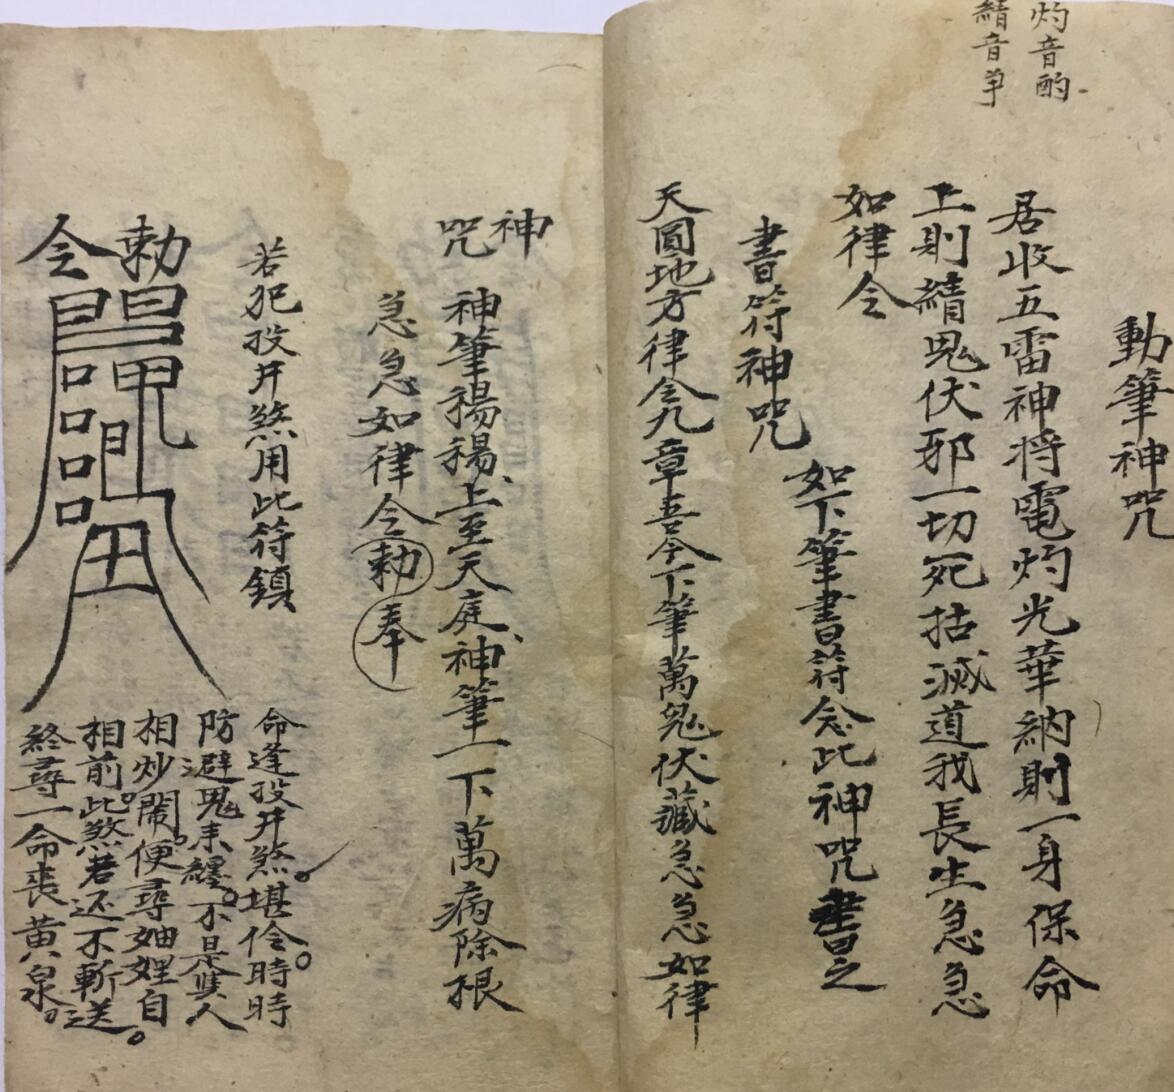 灼音酌
績音爭
動筆神咒
居收五雷神将電灼光華納則一身保命
上則績鬼伏邪一切死括滅道我長生急急
如律令
書符神咒
如下筆書符念此神咒書之
天圓地方律令九章吾今下筆萬鬼伏藏急急如律
神咒
神筆揚揚上至天庭神筆一下萬病除根
急急如律令勅奉
若犯投井煞用此符鎮
勅令
命逢投井煞。堪伶時時
防避鬼来纏。不是與人
相炒鬧。便尋妯娌自
相前。此煞若还不斬送。
終尋一命丧黄泉。